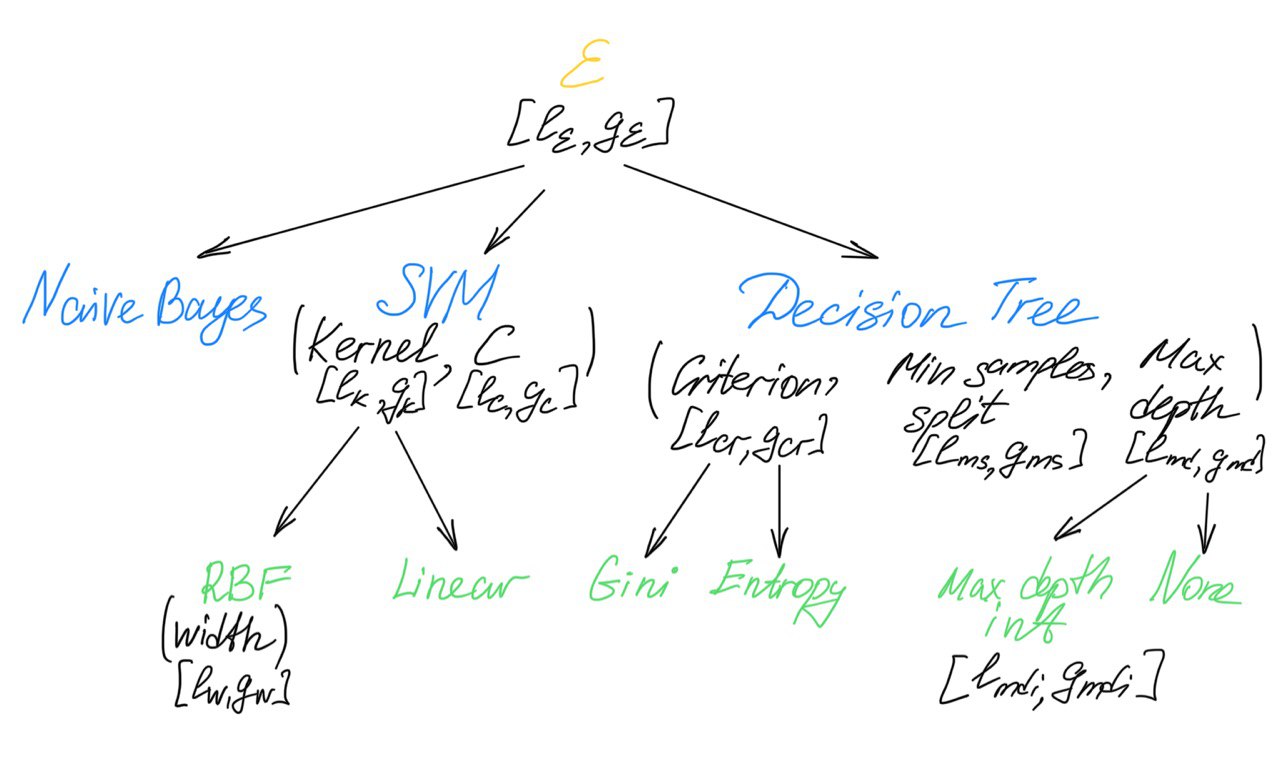 ℰ
[lℰ, gℰ]
Naive Bayes
SVM
(Kernel, C)
[lK, gK], [lC, gC]
Decision Tree
(Criterion, Min samples split, Max depth)
[lcr, gcr] [lms, gms] [lmd, gmd]
RBF
(width)
[lw, gw]
Linear
Gini
Entropy
Max depth
int
[lmdi, gmdi]
None